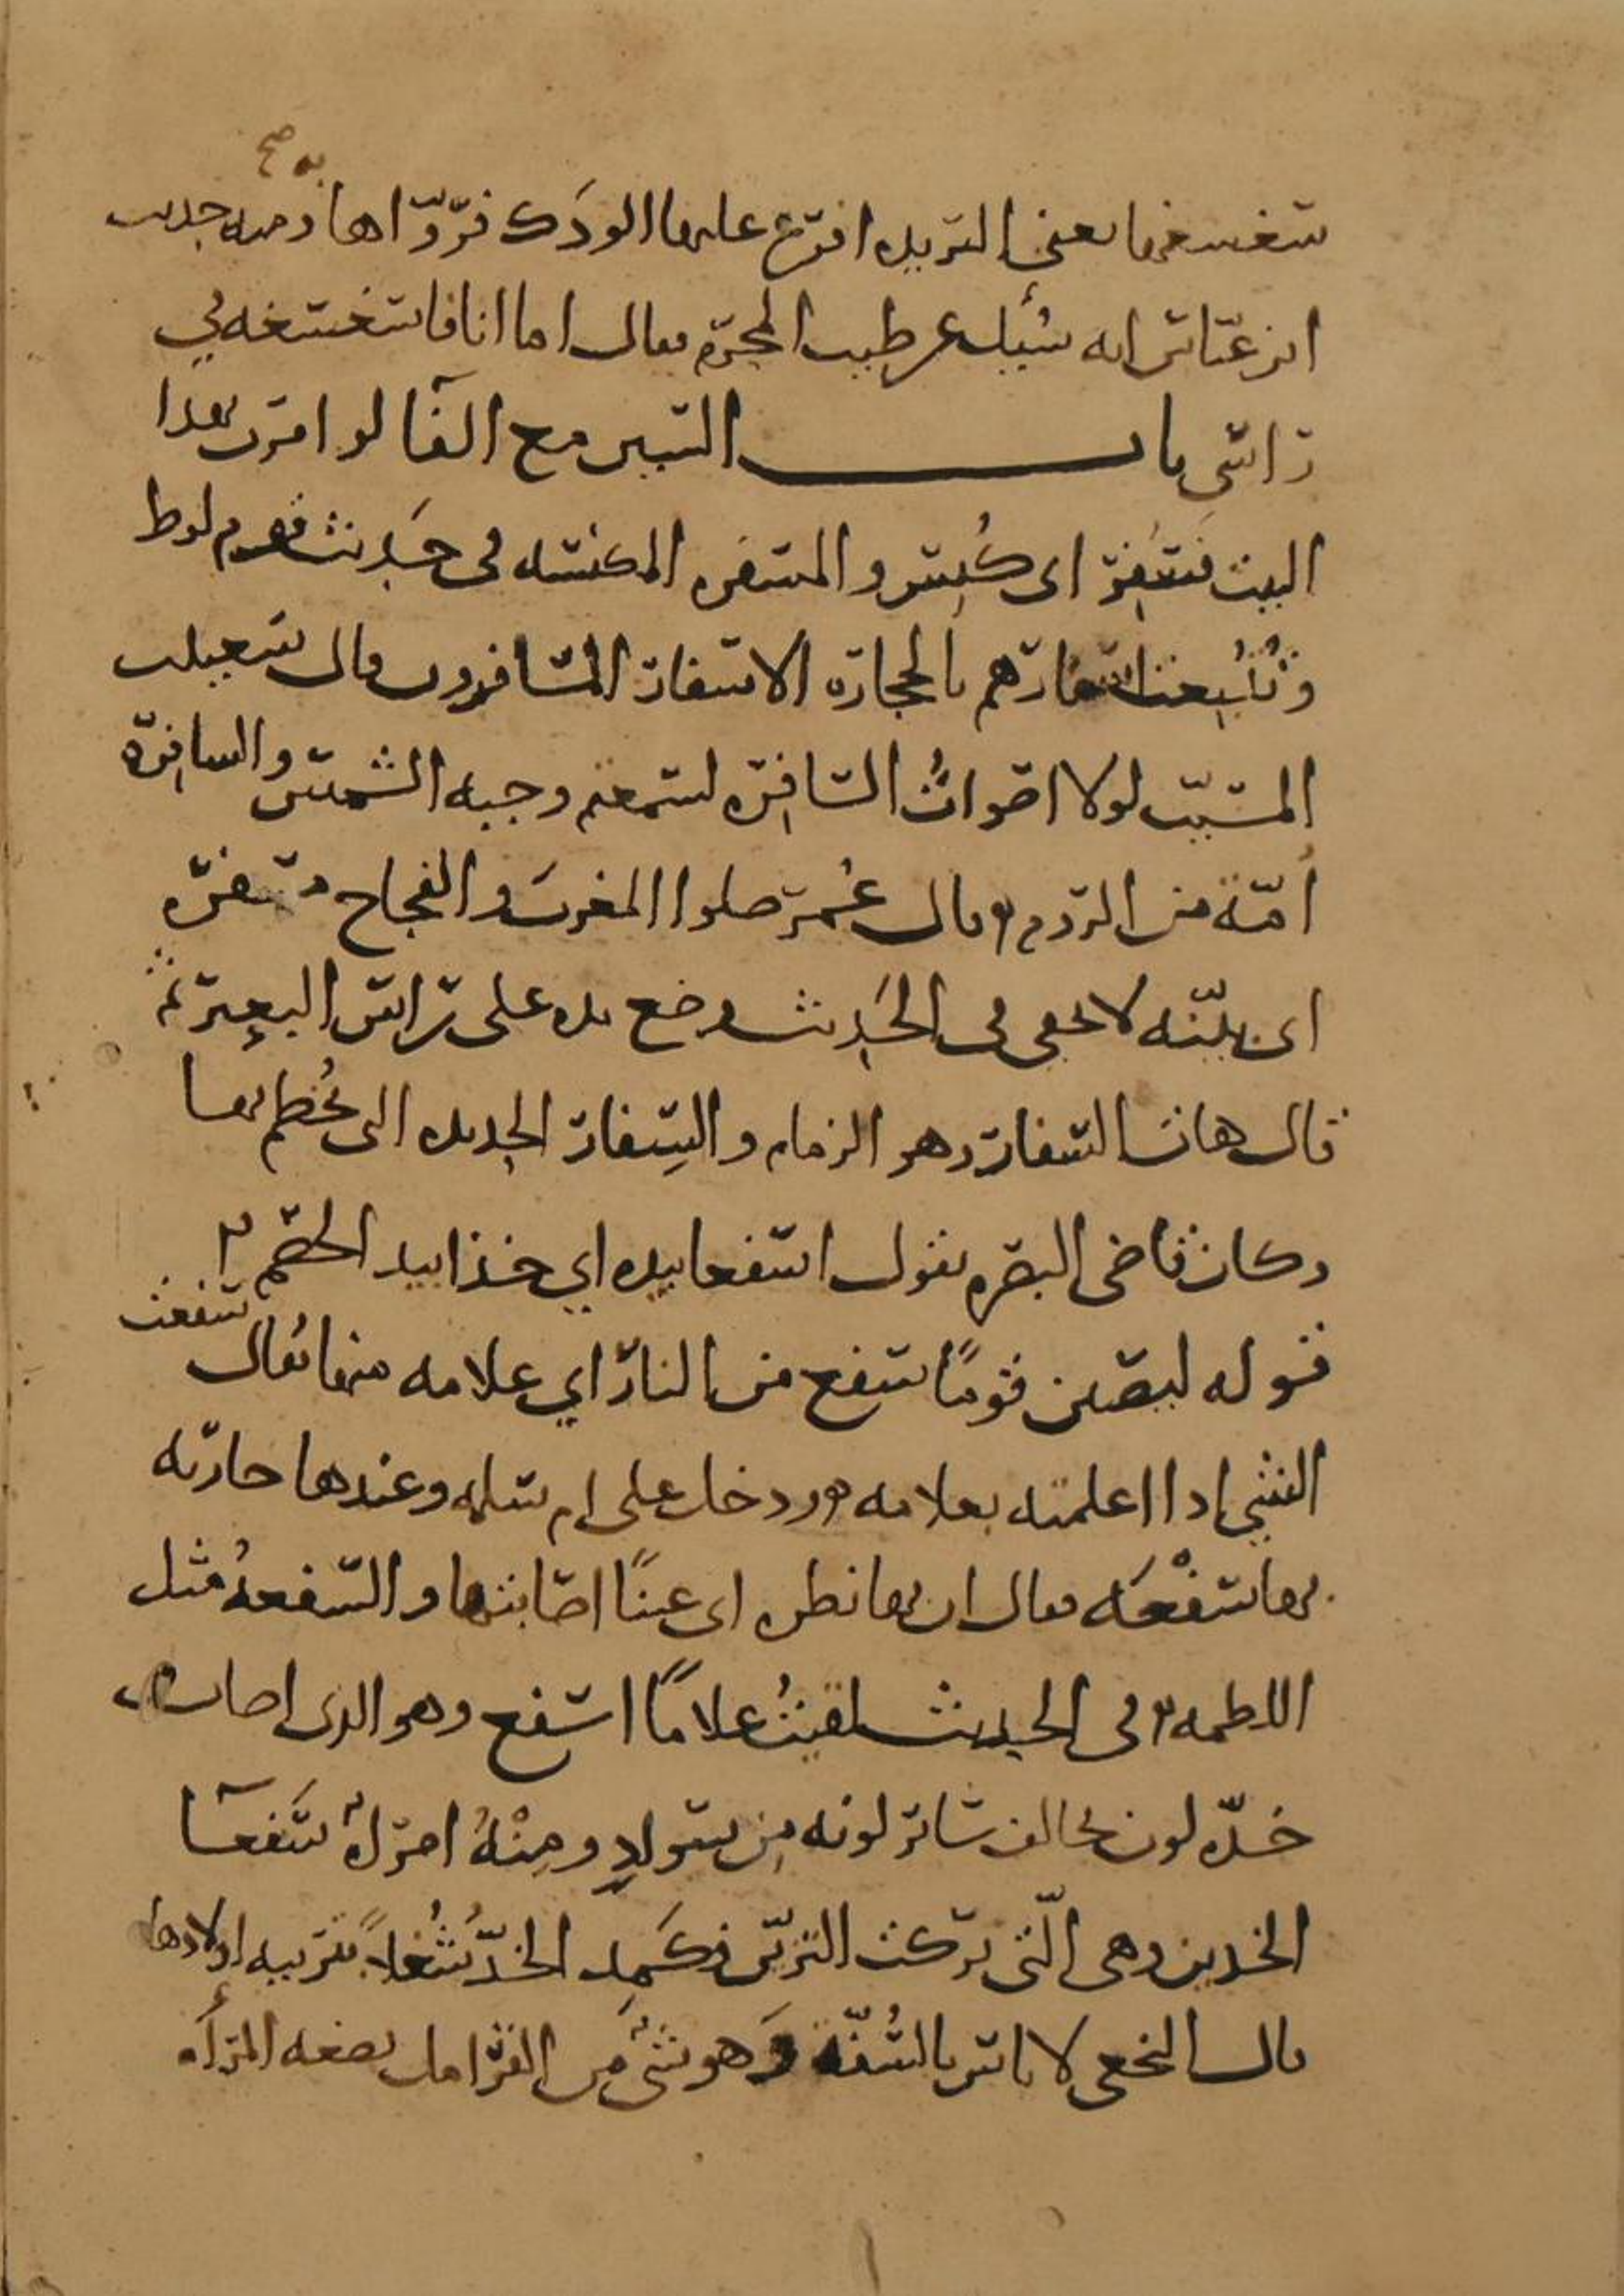 به صح
سغسغها يعنى الثريد افرغ عليها الودك فروّاها ومنه حديث
ابن عباس انه سُئِل عن طيب المحرم فقال اما انا فاسغسغه في
راسي باب السين مع الفا لو امرت بهذا
البيت فسُفِر اى كُنِس والمسفره المكنسه فى حديث قوم لوط
وتُتُبِعت اسفارهم بالحجاره الاسفار المسافرون وقال سعيد بن
المسيّب لولا اصواتُ السافِره لسمعتم وجبه الشمس والسافره
أمّة من الروم وقال عُمر صلوا المغرب والفجاج مسفره
اى بيّنه لا تخفى فى الحديث وضع يده على راس البعير ثم
قال هات السفار وهو الزمام والسِفار الحديده التى يُخطم بها
وكان قاضى البصره يقول اسفعا بيده اي خذا بيد الخصم
قوله ليصيبن قومًا سفع من النار اي علامه منها يُقال سفعت
الشي اذا اعلمته بعلامه ودخل على ام سلمه وعندها جاريه
بها سَفْعَه فقال ان بها نظره اى عينًا اصابتها والسفعهُ مثل
اللطمه وفى الحديث لقيتُ غلامًا اسفع وهو الذى اصاب
خدّه لون يخالف سائر لونه مِن سوادٍ ومِنْهُ امراة سَفعا
الخدين وهى الّتى تركت التزيّن فكَمِد الخدّ شُغلاً بتربيه اولادها
قال النخعى لا باس بالسُفّه وَهو شىٌ من القرامل تضعه المرأه